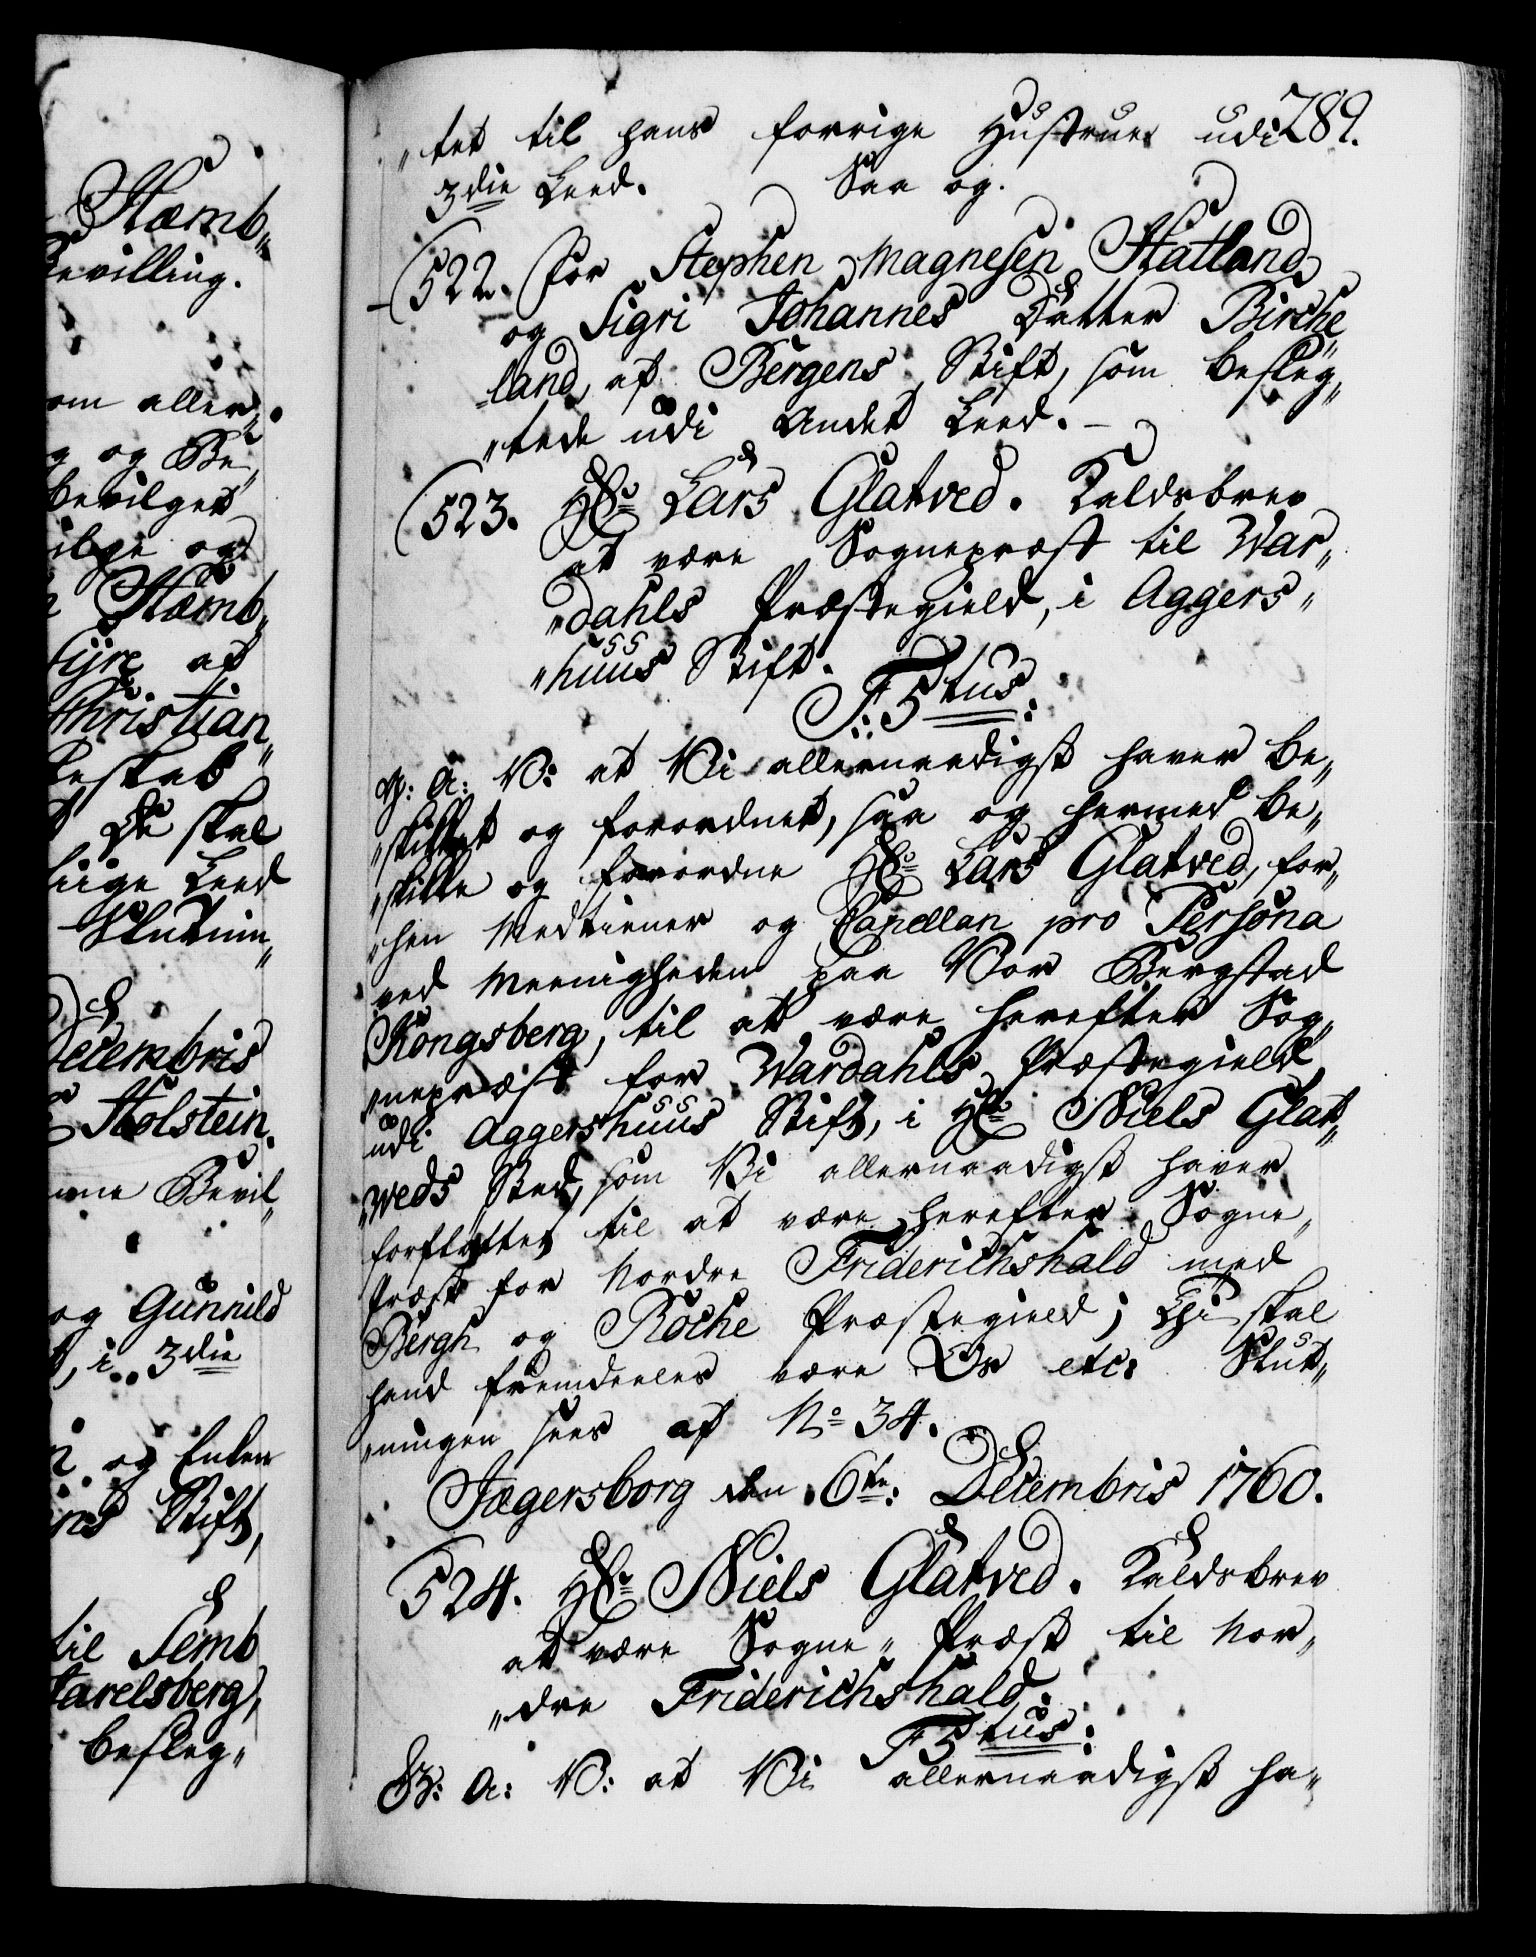 Hæmb„
Bevilling.
om aller„
g og Be„
bevilget
ilge og
Hæmb„
Fyre af
Christian„
De skal
liige Leed
Slutnin„
Decembris
Holstein.
Bevil„
og Gunnild
, i 3die
og Enken
Stift,
til Semb
Jarelsberg,
besleg„
289.
„tet til hans forrige Hustrue udi
3die Leed. Saa og.
522. for Stephen Magnesen Hatland
og Sigri Johannes Datter Birche„
„land, af Bergens Stift, som besleg„
„tede udi Andet Leed. –
523. Hr Lars Glatved. Kaldsbrev
at være Sognepræst til War„
„dahls Præstegield, i Aggers„
„huus Stift.
F: 5tus:
G: A: V: at Vi allernaadigst haver be„
„skikket og forordnet, saa og hermed be„
„skikke og forordne Hr Lars Glatved, for„
„hen Medtiener og Capellan pro Persona
ved Meenigheden paa Vor Bergstad
Kongsberg, til at være herefter Sog„
„nepræst for Wardahls Præstegield
udi Aggershuus Stift, i Hr Niels Glat„
„weds Sted, som Vi allernaadigst haver
forflyttet til at være herefter Sogne„
Præst for Nordre Friderichshald med
Bergh og Roche Præstegield; Thi skal
hand fremdeeles være Os etc: Slut„
„ningen sees af No 34.
Jægersborg den 6te: Decembris 1760.
524. Hr Niels Glatved. Kaldsbrev
at være Sogne„Præst til Nor„
„dre Friderichshald.
F 5tus:
G: A: V: at Vi allernaadigst ha„